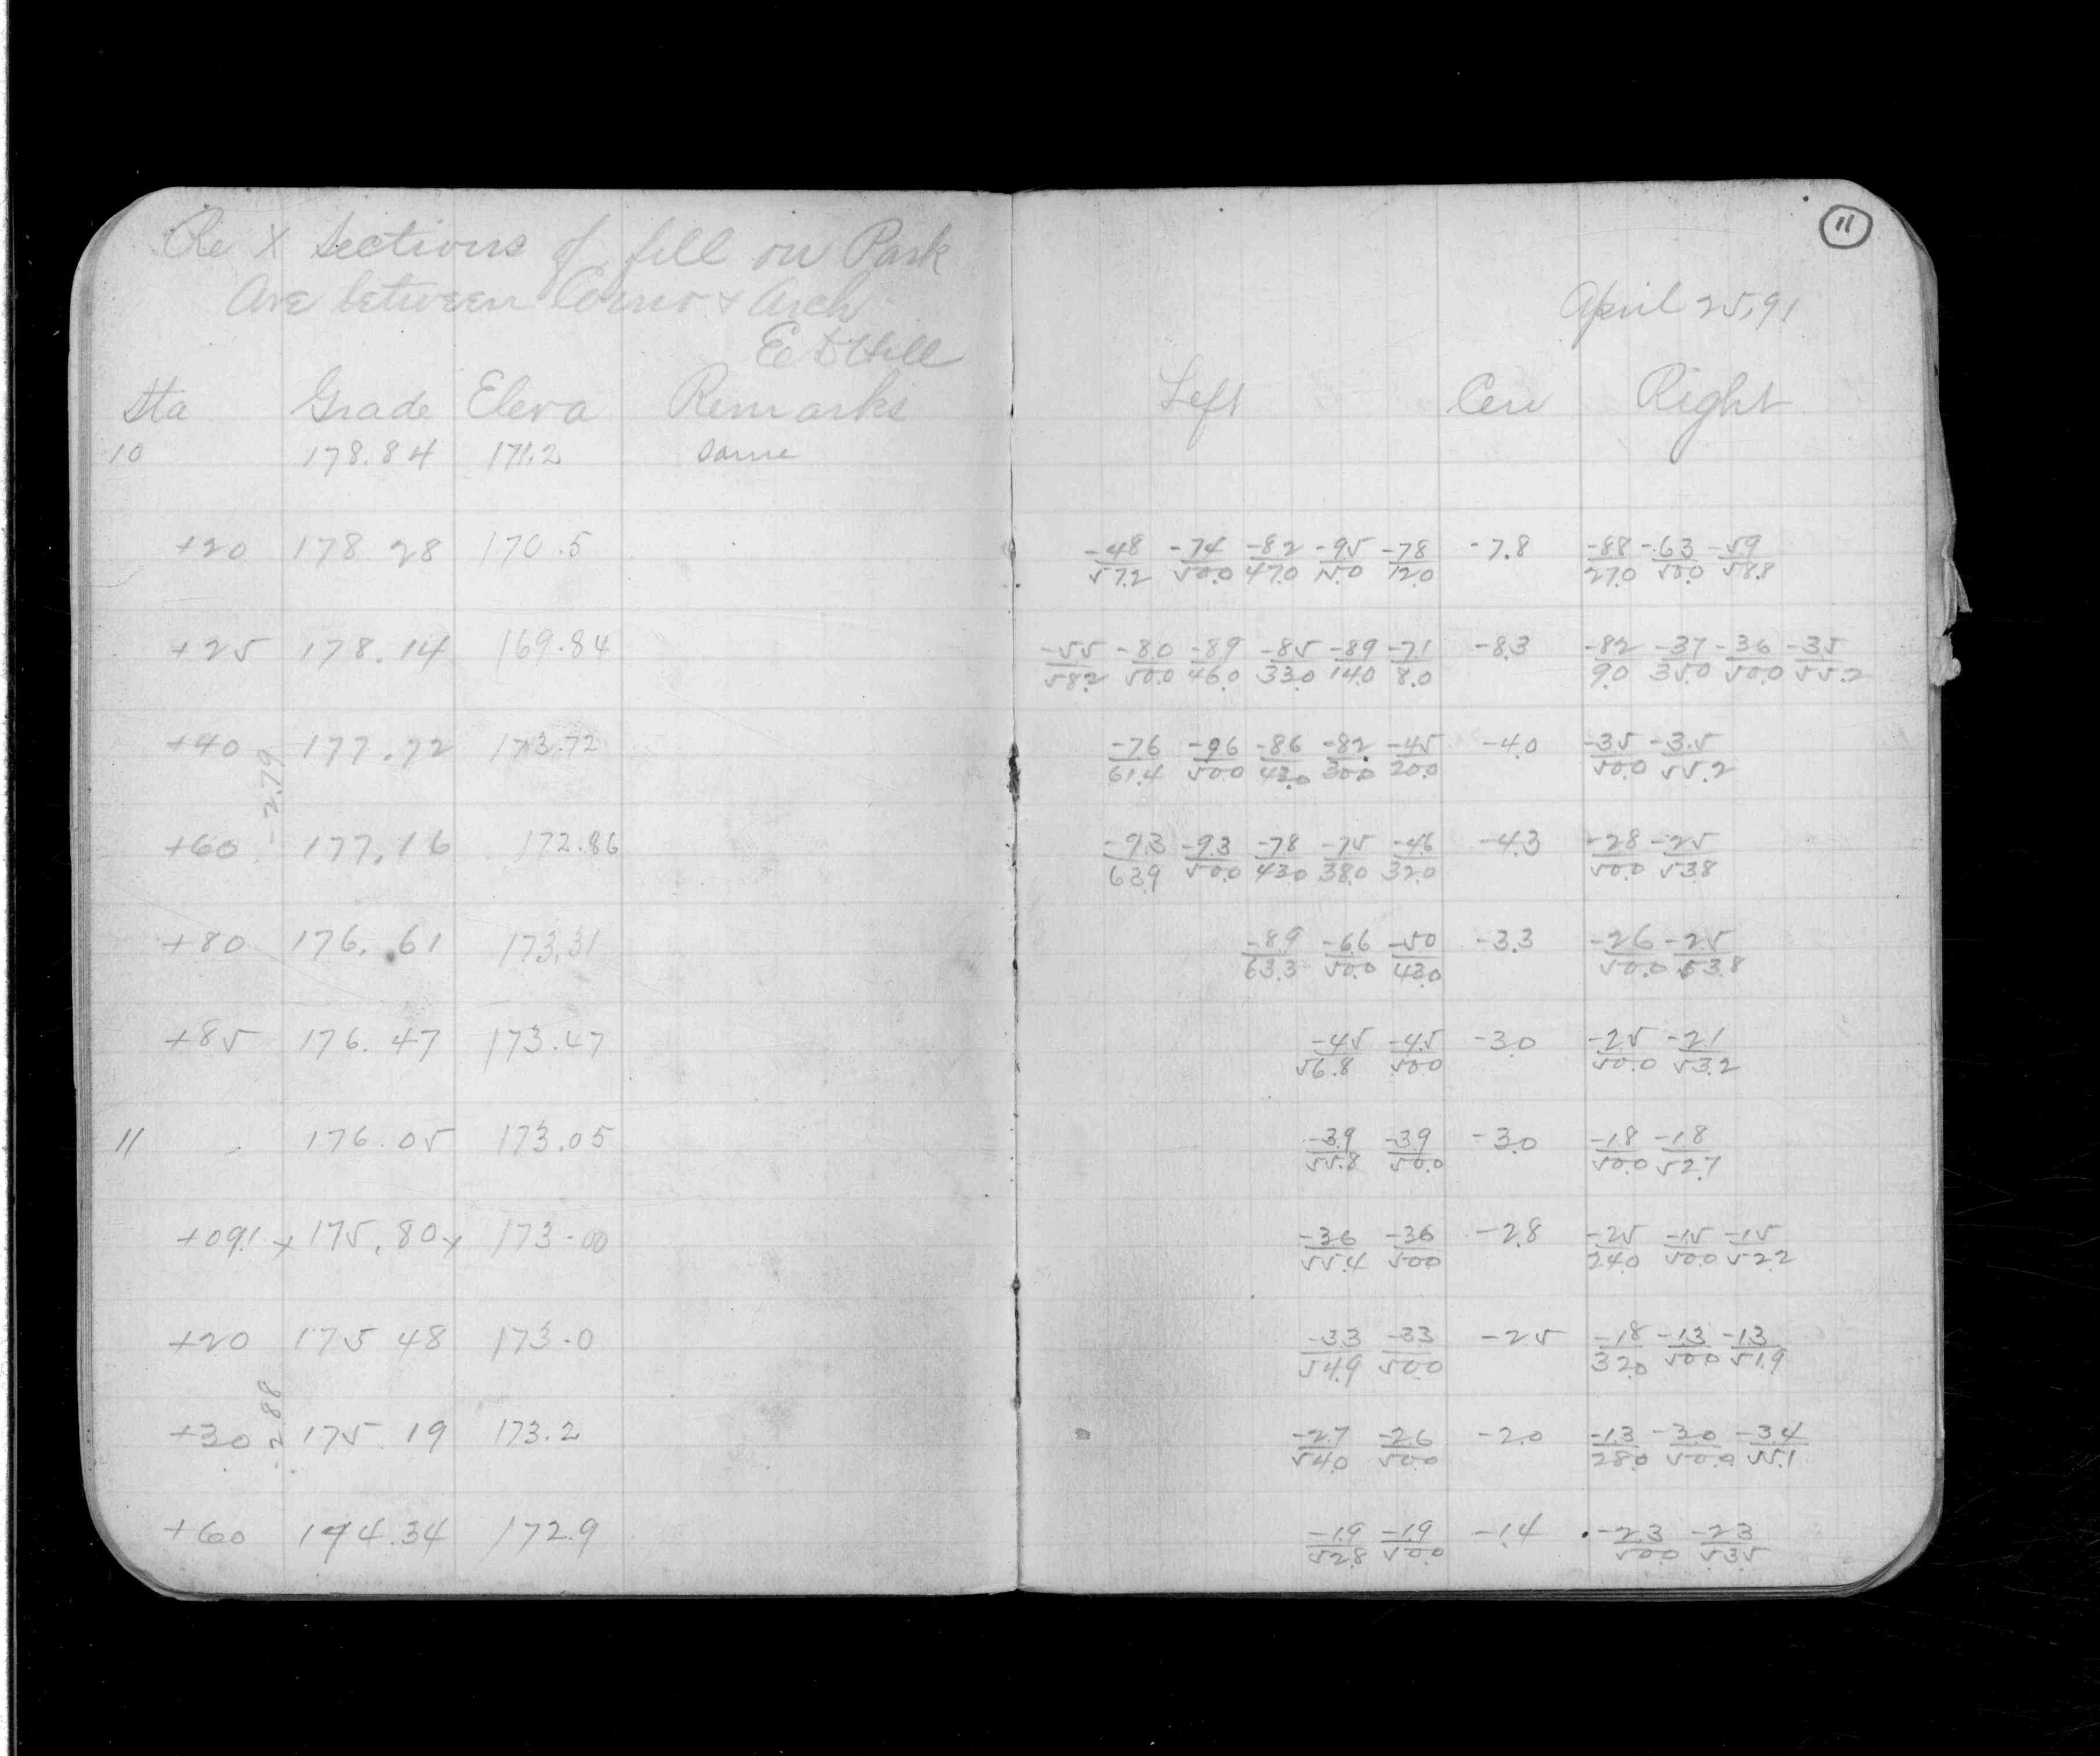 Re X Sections of fill on Park
Ave between Corner & Arch
April 25, 91
11
Sta Grade Eleva Remarks Left Cen Right
10 178.84 171.2 same
+20 178.28 170.5 -4.8/57.2 -7.4/50.0 -8.2/47.0 -9.5/15.0 -7.8/12.0 -7.8 -8.8/27.0 -6.3/50.0 -5.9/58.8
+25 178.14 169.84 -5.5/58.2 -8.0/50.0 -8.9/46.0 -8.5/33.0 -8.9/14.0 -7.1/8.0 -8.3 -8.2/9.0 -3.7/35.0 -3.6/50.0 -3.5/55.2
+40 177.72 173.72 -7.6/61.4 -9.6/50.0 -8.6/43.0 -8.2/30.0 -4.5/20.0 -4.0 -3.5/50.0 -3.5/55.2
-2.79
+60 177.16 172.86 -9.3/63.9 -9.3/50.0 -7.8/43.0 -7.5/38.0 -4.6/32.0 -4.3 -2.8/50.0 -2.5/53.8
+80 176.61 173.31 -8.9/63.3 -6.6/50.0 -5.0/43.0 -3.3 -2.6/50.0 -2.5/53.8
+85 176.47 173.47 -4.5/56.8 -4.5/50.0 -3.0 -2.5/50.0 -2.1/53.2
11 176.05 173.05 -3.9/55.8 -3.9/50.0 -3.0 -1.8/50.0 -1.8/52.7
+09.1 x 175.80 x 173.00 -3.6/55.4 -3.6/50.0 -2.8 -2.5/24.0 -1.5/50.0 -1.5/52.2
+20 175.48 173.0 -3.3/54.9 -3.3/50.0 -2.5 -1.8/32.0 -1.3/50.0 -1.3/51.9
-2.88
+30 175.19 173.2 -2.7/54.0 -2.6/50.0 -2.0 -1.3/28.0 -3.0/50.0 -3.4/55.1
+60 174.34 172.9 -1.9/52.8 -1.9/50.0 -1.4 -2.3/50.0 -2.3/53.5